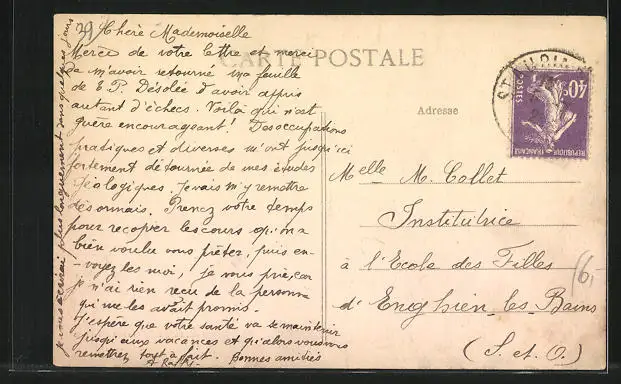 Chère Mademoiselle
Merci de votre lettre et merci
de m'avoir retourné ma feuille
de E. P. Désolée d'avoir appris
autant d'échecs. Voilà qui n'est
guère encourageant! Des occupations
pratiques et diverses m'ont jusqu'ici
fortement détournée de mes études
géologiques. Je vais m'y remettre
désormais. Prenez votre temps
pour recopier les cours qu'on a
bien voulu vous prêter, puis en-
voyez les moi, je vous prie, car
je n'ai rien reçu de la personne
qui me les avait promis.
J'espère que votre santé va se maintenir
jusqu'aux vacances et qu'alors vous vous
remettrez tout à fait. Bonnes amitiés
je vous écrirai plus longuement sous quelques jours
CARTE POSTALE
Adresse
Melle M. Collet
Institutrice
à l'Ecole des Filles
d'Enghien-les-Bains
(S. et O.)
6,-
40c
POSTES
REPUBLIQUE FRANÇAISE